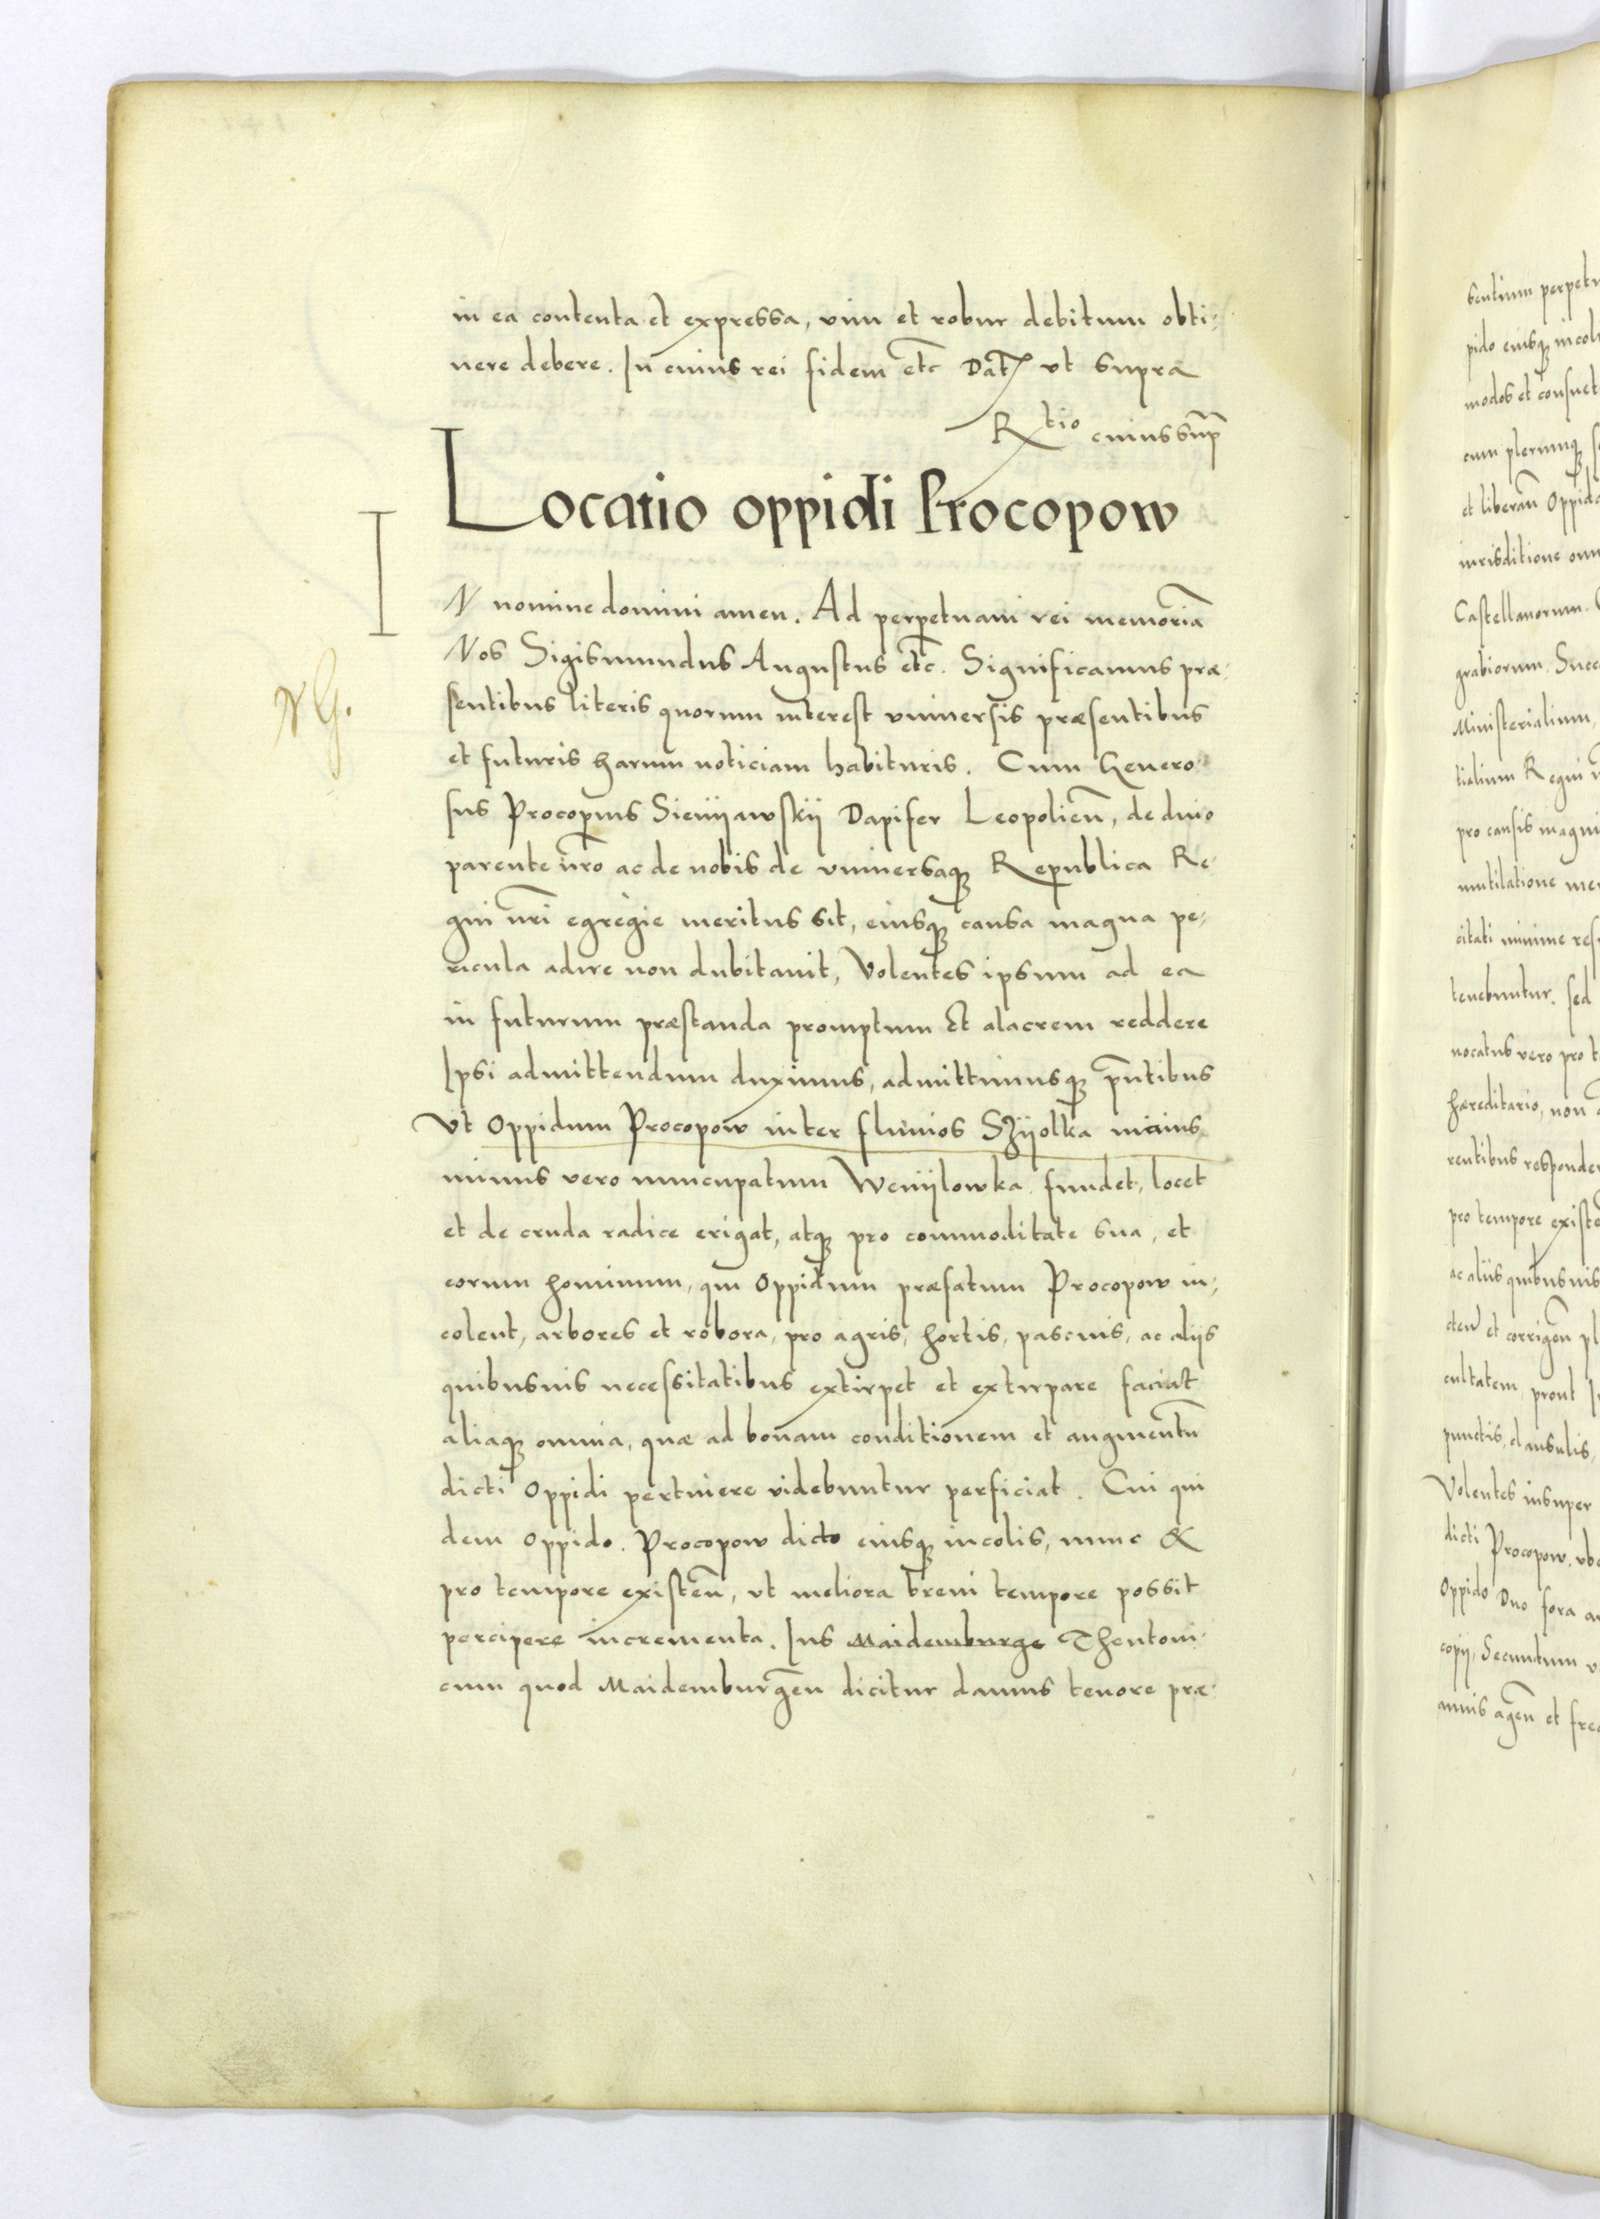 in ea contenta et expressa, vim et robur debitum obti-
nere debere. In cuius rei fidem etc Dat ut supra
Rtio cuius sup
Locatio oppidi Procopow
IN nomine domini amen. Ad perpetuam rei memoriā
Nos Sigismundus Augustus etc. Significamus præ-
sentibus literis quorum interest vniuersis præsentibus
et futuris harum noticiam habituris. Cum Genero-
sus Procopius Sieniiawskii Dapifer Leopolien̄, de diuo
parente n̄ro ac de nobis de vniuersaq; Republica Re-
gni n̄ri egregie meritus sit, eiusq; causa magna pe-
ricula adire non dubitauit, Volentes ipsum ad ea
in futurum præstanda promptum Et alacrem reddere
Ipsi admittendum duximus, admittimusq; p̄ntibus
Vt Oppidum Procopow inter fluuios Szÿolka maius
minus vero nuncupatum Weniilowka fundet, locet
et de cruda radice erigat, atq; pro commoditate sua, et
eorum hominum, qui Oppidum præfatum Procopow in-
colent, arbores et robora, pro agris, hortis, pascuis, ac aliis
quibusuis necessitatibus extirpet et extirpare faciat
aliaq; omnia, quæ ad bonam conditionem et augmentū
dicti Oppidi pertinere videbuntur perficiat. Cui qui
dem Oppido. Procopow dicto eiusq; incolis, nunc &
pro tempore existen̄, vt meliora breui tempore possit
percipere incrementa. Ius Maidemburge Theutoni-
cum quod Maidemburgen̄ dicitur damus tenore præ-
NG.
sentium perpetu
pido eiusq; incol
modos et consuet
cum plerumq;
et liberam̄ Oppid
iurisditione om
Castellanorum.
grabiorum. Succ
Ministerialium,
tialium Regni n̄
pro causis magni
mutilatione me
citati minime res
tenebuntur. sed
uocatus vero pro t
hæreditario, non
rentibus responde
pro tempore existe
ac aliis quibusuis
et corrigen̄ pl
cultatem prout
punctis, clausulis,
Volentes insuper
dicti Procopow. vb
Oppido Duo fora a
copii, Secundum v
amus agen̄ et fre